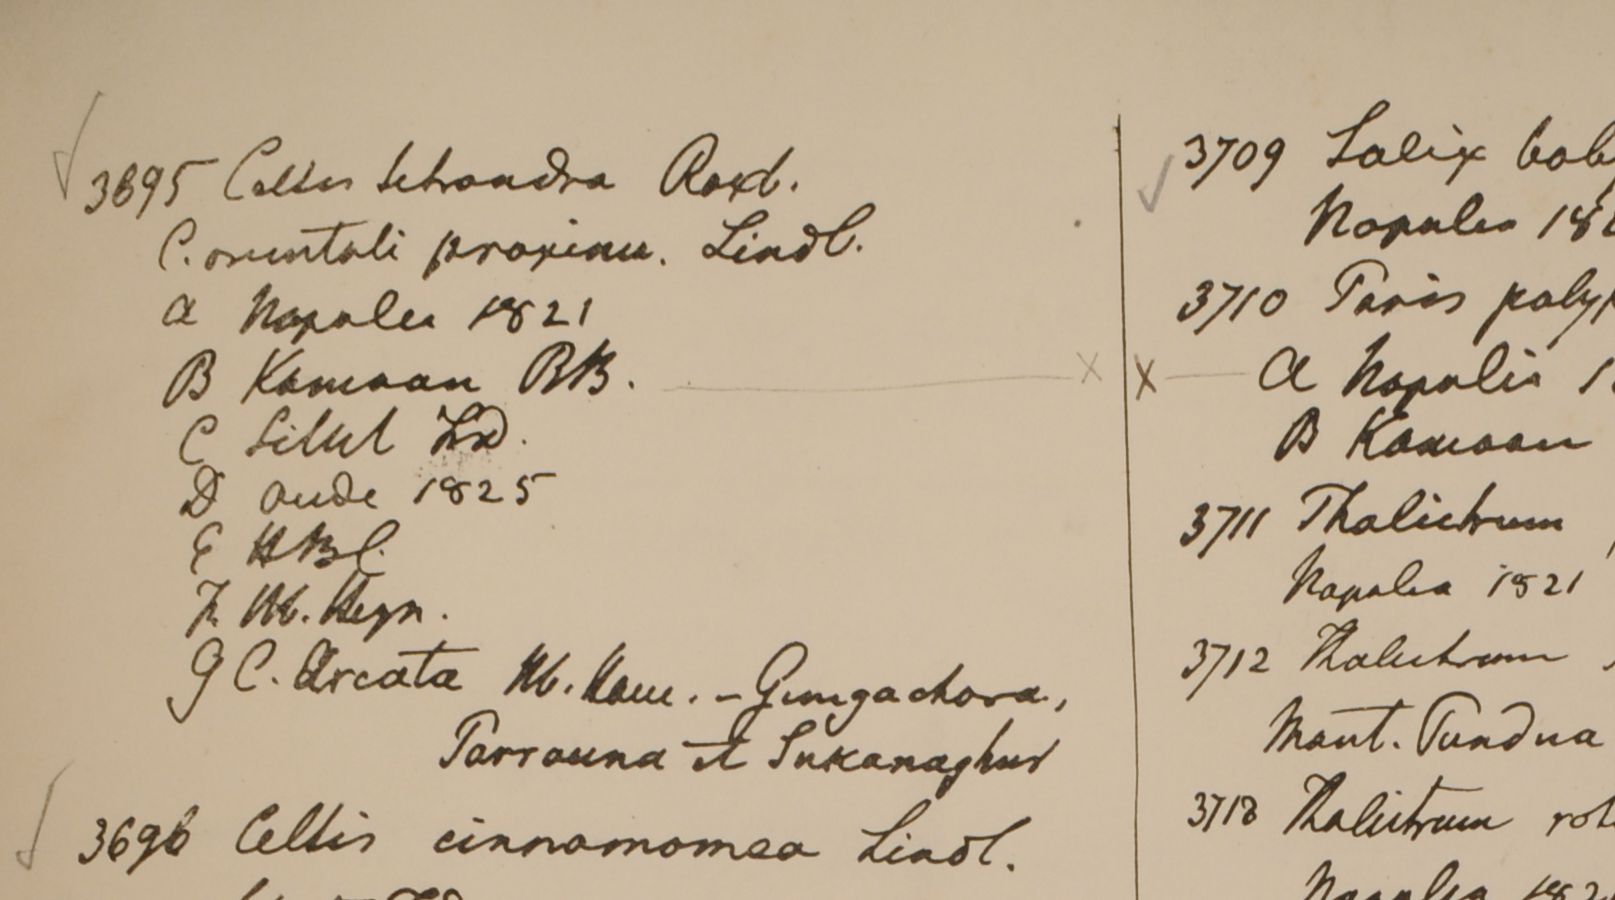 3695 Celtis tetrandra Roxb.
C. orientali proxima. Lindl.
A Napalia 1821
B Kamaon RB.
C Silhet FD.
D Oude 1825
E HBC.
F Hb. Heyn.
G C. Arcata Hb. Ham. - Gungachora,
Parrauna et Sukanaghur
3696 Celtis cinnamomea Lindl.
3709 Salix baby
Napalia 182
3710 Paris polyp
A Napalia 1
B Kamaon
3711 Thalictrum
Napalia 1821
3712 Thalictrum
Mont. Pundua
3713 Thalictrum rot
Napalia 182